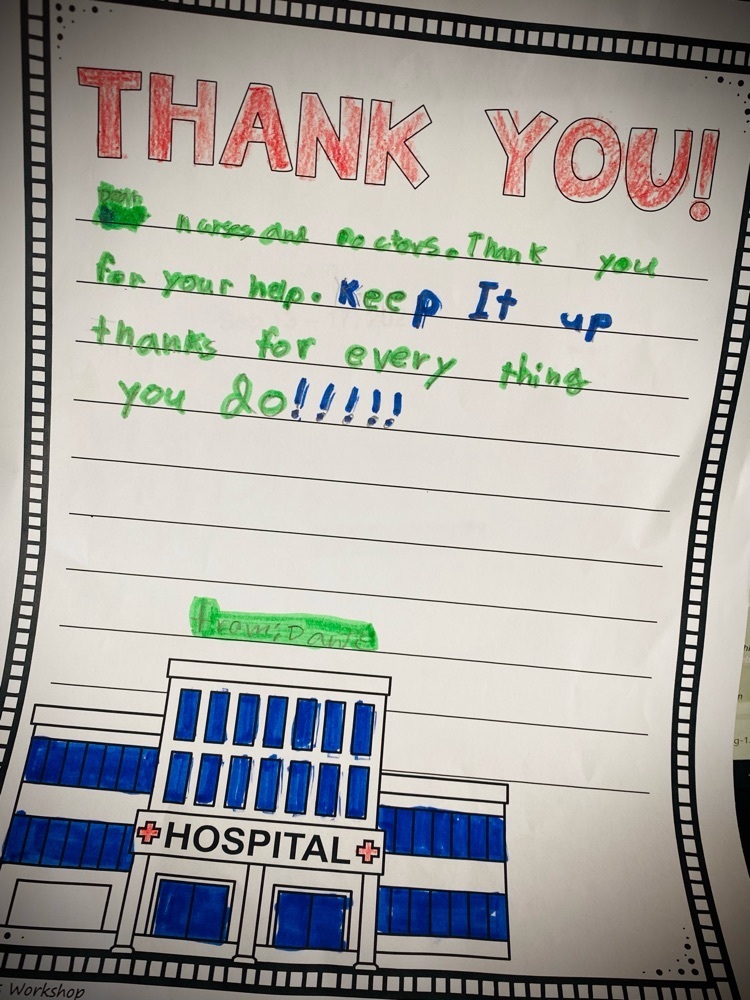 THANK YOU!
Dear nurses and Doctors. Thank you
for your help. Keep It up
thanks for every thing
you do!!!!!
From; Dante
HOSPITAL
Workshop